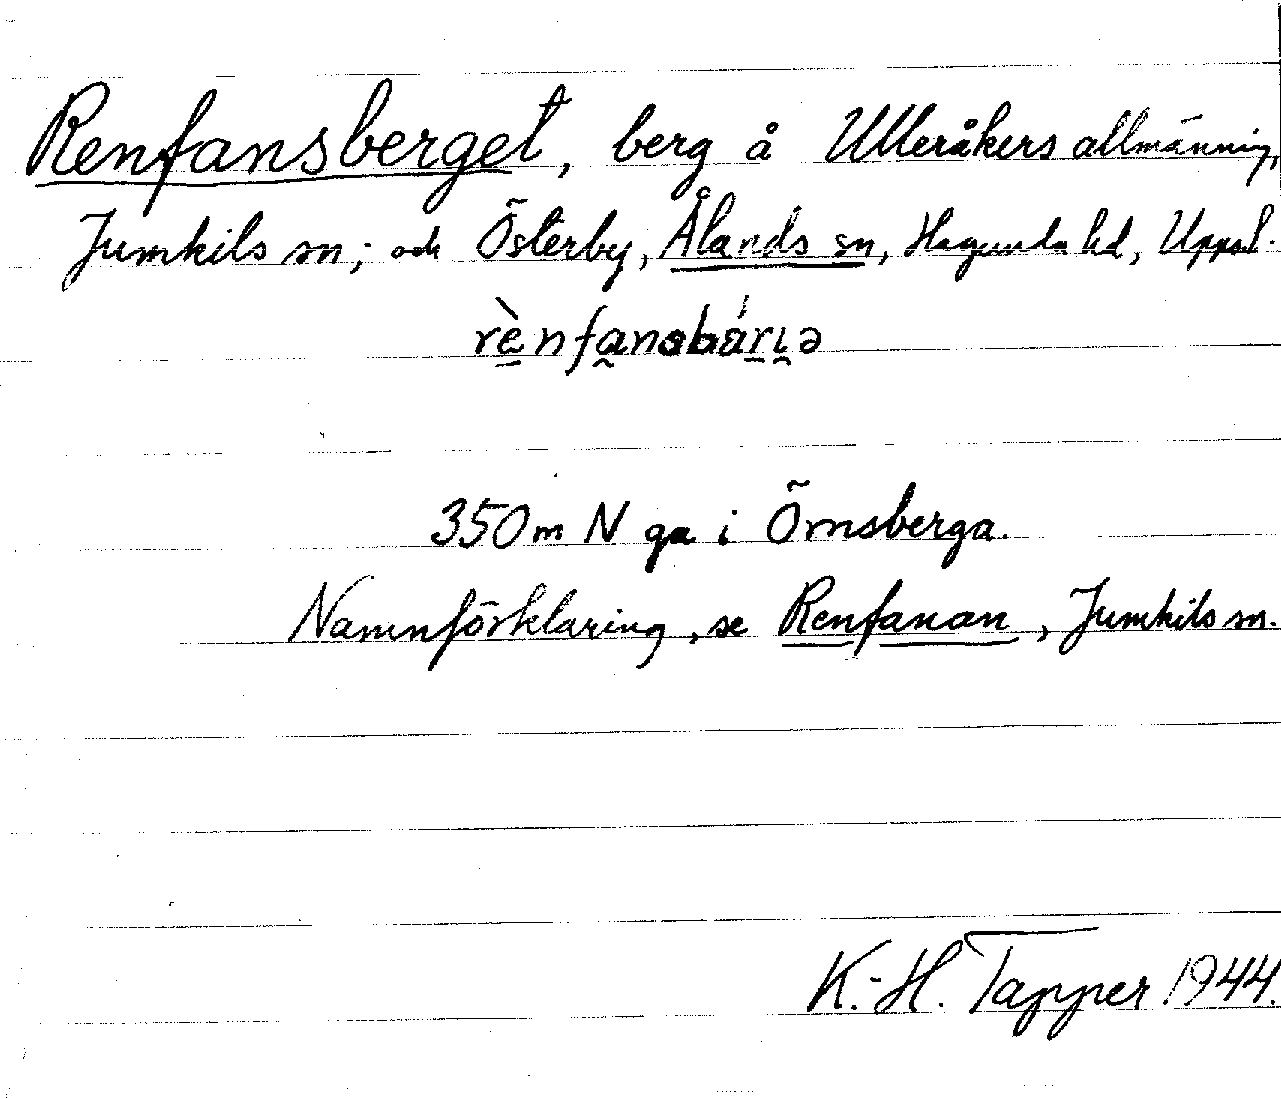 Renfansberget, berg å Ulleråkers allmänning,
Jumkils sn; och Österby, Ålands sn, Hagunda hd, Uppl.
rènfansbárıə
350 m N ga i Örnsberga.
Namnförklaring, se Renfanan, Jumkils sn.
K.-H. Tapper 1944.